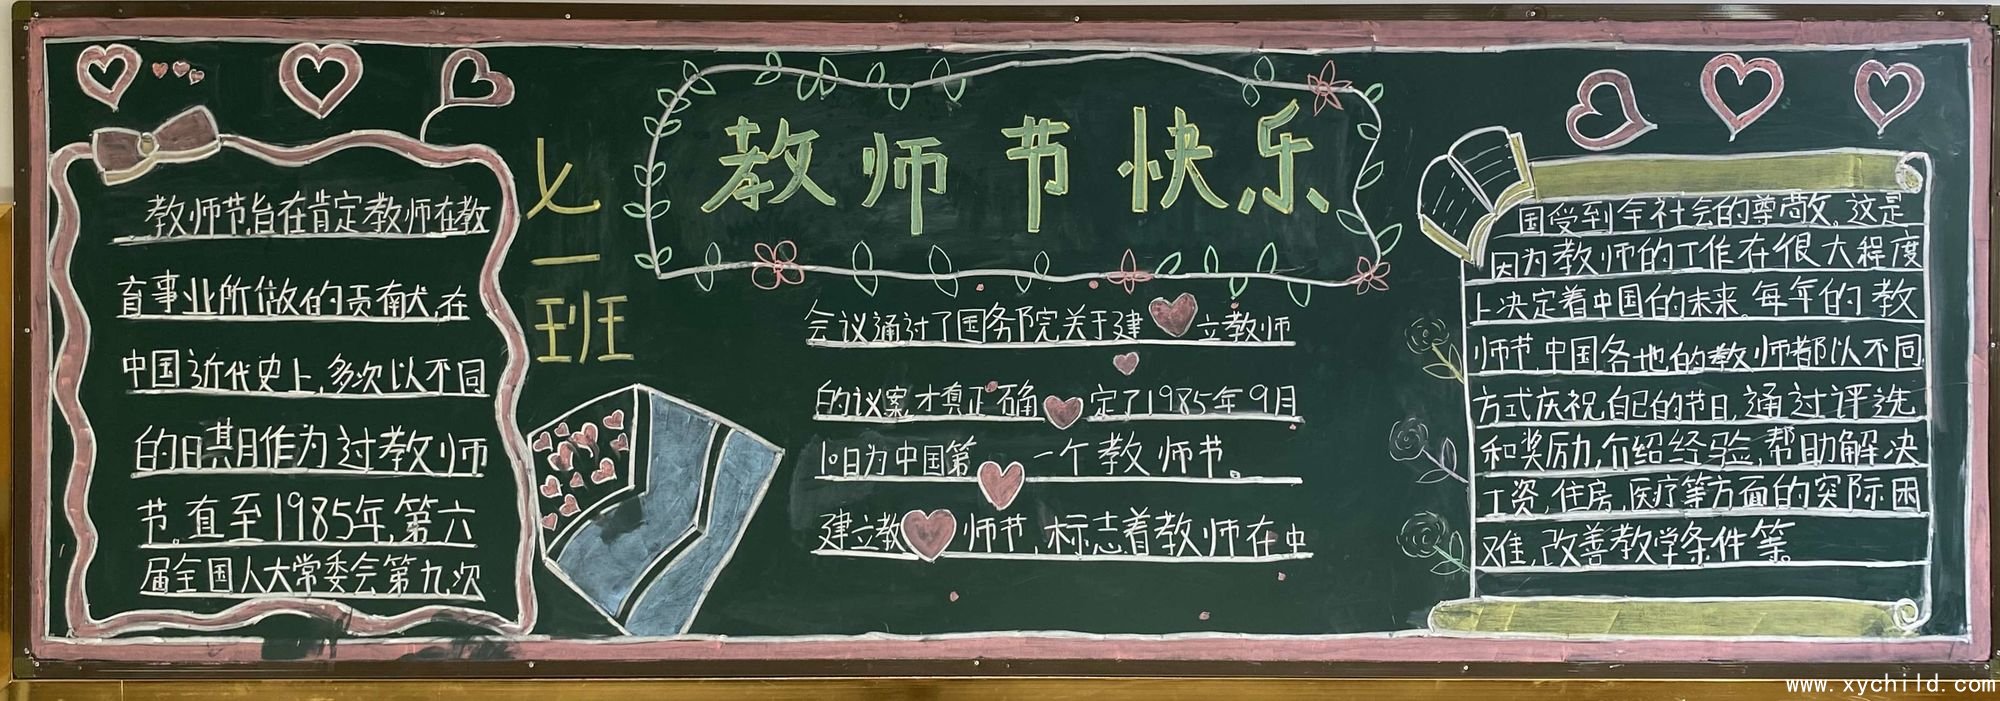 教师节快乐
七一班
教师节,旨在肯定教师在教
育事业所做的贡献,在
中国近代史上,多次以不同
的日期作为过教师
节。直至1985年,第六
届全国人大常委会第九次
会议通过了国务院关于建立教师
的议案,才真正确定了1985年9月
10日为中国第一个教师节。
建立教师节,标志着教师在中
国受到全社会的尊敬。这是
因为教师的工作在很大程度
上决定着中国的未来。每年的教
师节,中国各地的教师都以不同
方式庆祝自己的节日,通过评选
和奖励,介绍经验,帮助解决
工资,住房,医疗等方面的实际困
难,改善教学条件等。
www.xychild.com